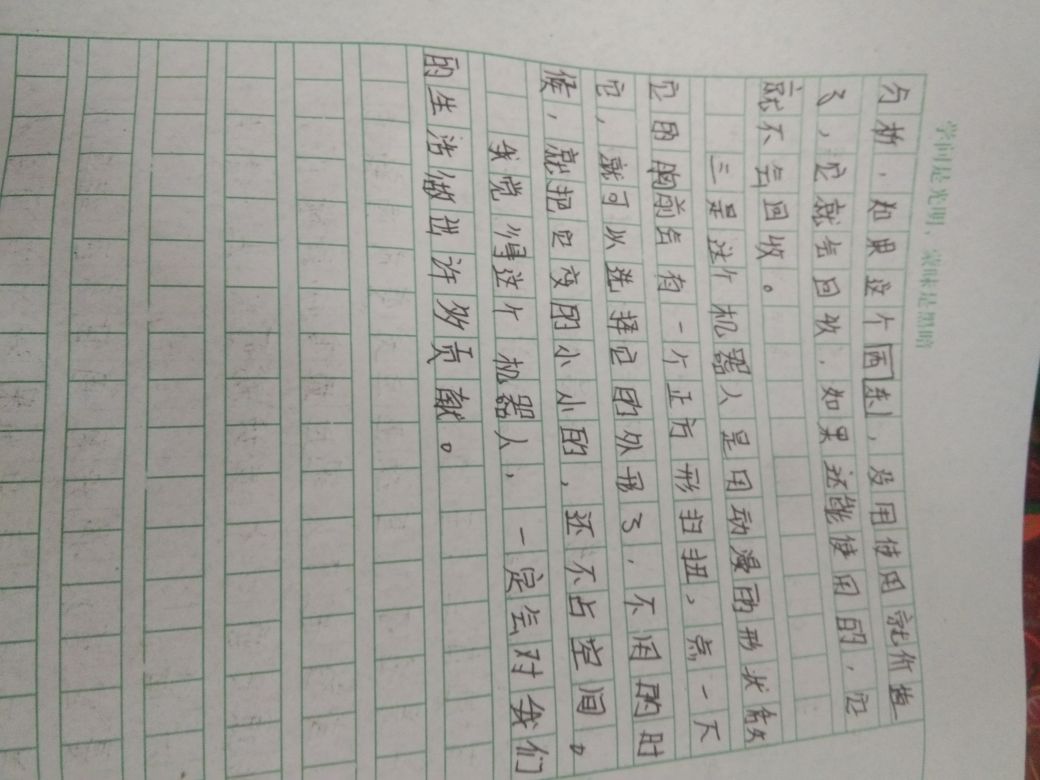 学问是光明，蒙昧是黑暗
分析，如果这个西东，没用使用就价
了，它就会回收，如果还能使用的，它
就不会回收。
三是这个机器人是用动漫的形状做
它的胸前会有一个正方形扫扭，点一下
它，就可以选择它的外形了，不用的时
候，就把它变的小小的，还不占空间。
我觉得这个机器人，一定会对我们
的生活做出许多贡献。